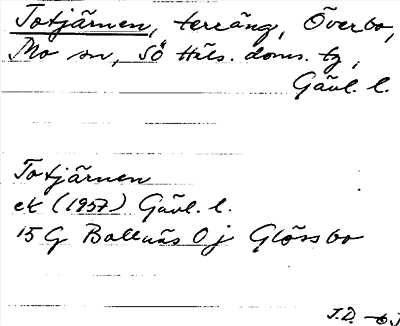 Totjärnen, terräng, Överbo,
Mo sn, Sö Häls. doms. tg,
Gävl. l.
Totjärnen
ek (1957) Gävl. l.
15G Bollnäs 0j Glössbo
J.D.